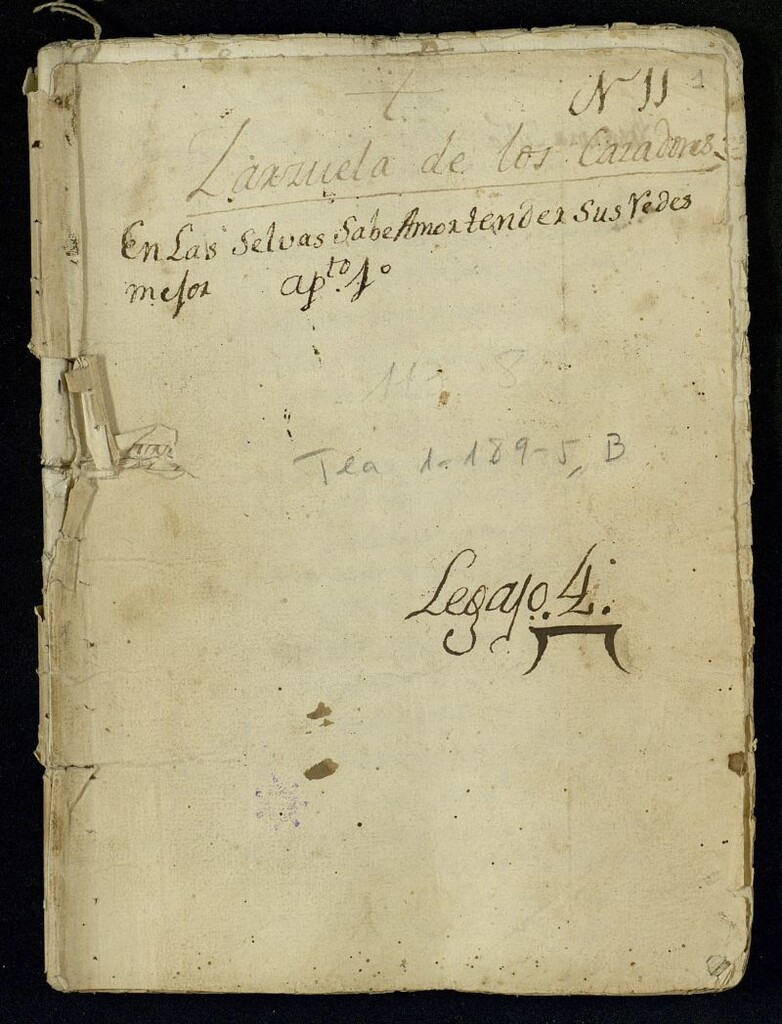 N 11 1
Zarzuela de los Cazadores
En Las Selvas Sabe Amor tender Sus Redes
mejor apto. 1º
Tea 1-189-5, B
Legajo. 4.